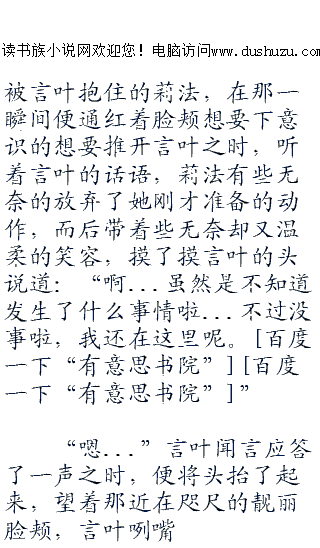 读书族小说网欢迎您！电脑访问www.dushuzu.com
被言叶抱住的莉法，在那一
瞬间便通红着脸颊想要下意
识的想要推开言叶之时，听
着言叶的话语，莉法有些无
奈的放弃了她刚才准备的动
作，而后带着些无奈却又温
柔的笑容，摸了摸言叶的头
说道：“啊...虽然是不知道
发生了什么事情啦...不过没
事啦，我还在这里呢。[百度
一下“有意思书院”][百度
一下“有意思书院”]”
“嗯...”言叶闻言应答
了一声之时，便将头抬了起
来，望着那近在咫尺的靓丽
脸颊，言叶咧嘴